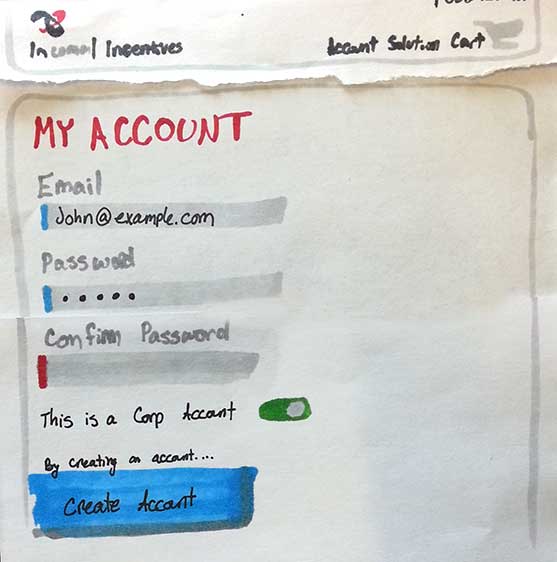 Incomal Incentives
Account Solution Cart
MY ACCOUNT
Email
John@example.com
Password
•••••
Confirm Password
This is a Corp Account
By creating an account....
Create Account